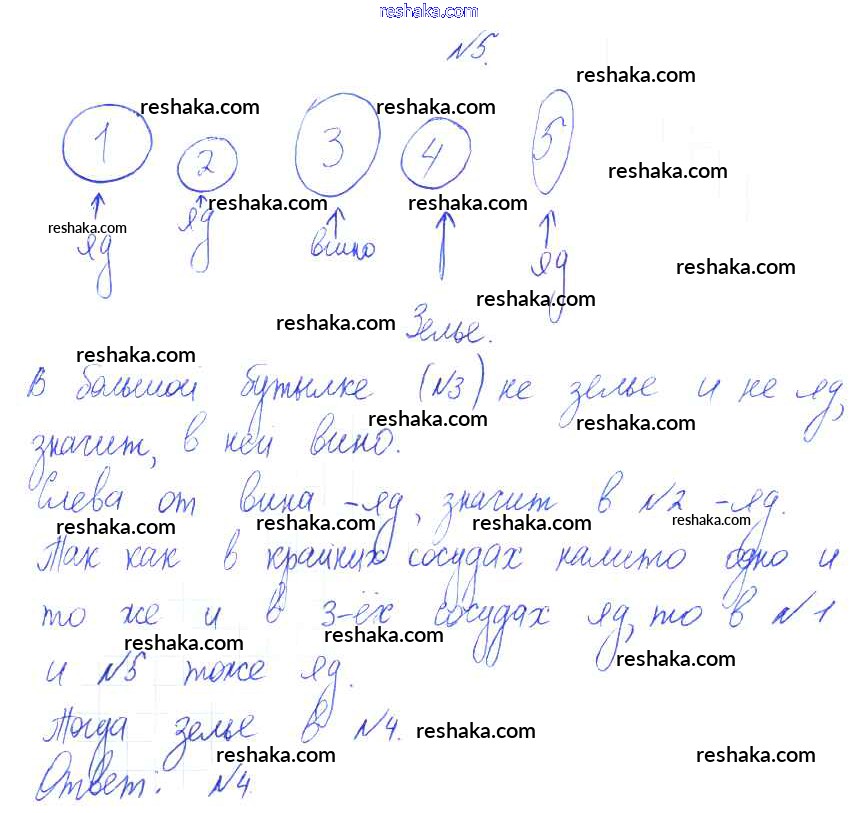 reshaka.com
№5.
reshaka.com
reshaka.com reshaka.com
1 2 3 4 5
reshaka.com
reshaka.com reshaka.com
reshaka.com
яд яд вино яд
reshaka.com
reshaka.com
reshaka.com
Зелье.
reshaka.com
В большой бутылке (№3) не зелье и не яд,
reshaka.com reshaka.com
значит, в ней вино.
Слева от вина - яд, значит в №2 - яд.
reshaka.com reshaka.com reshaka.com reshaka.com
Так как в крайних сосудах налито одно и
то же и в 3-ёх сосудах яд, то в №1
reshaka.com reshaka.com
reshaka.com
и №5 тоже яд.
Тогда зелье в №4.
reshaka.com
reshaka.com reshaka.com
Ответ: №4.